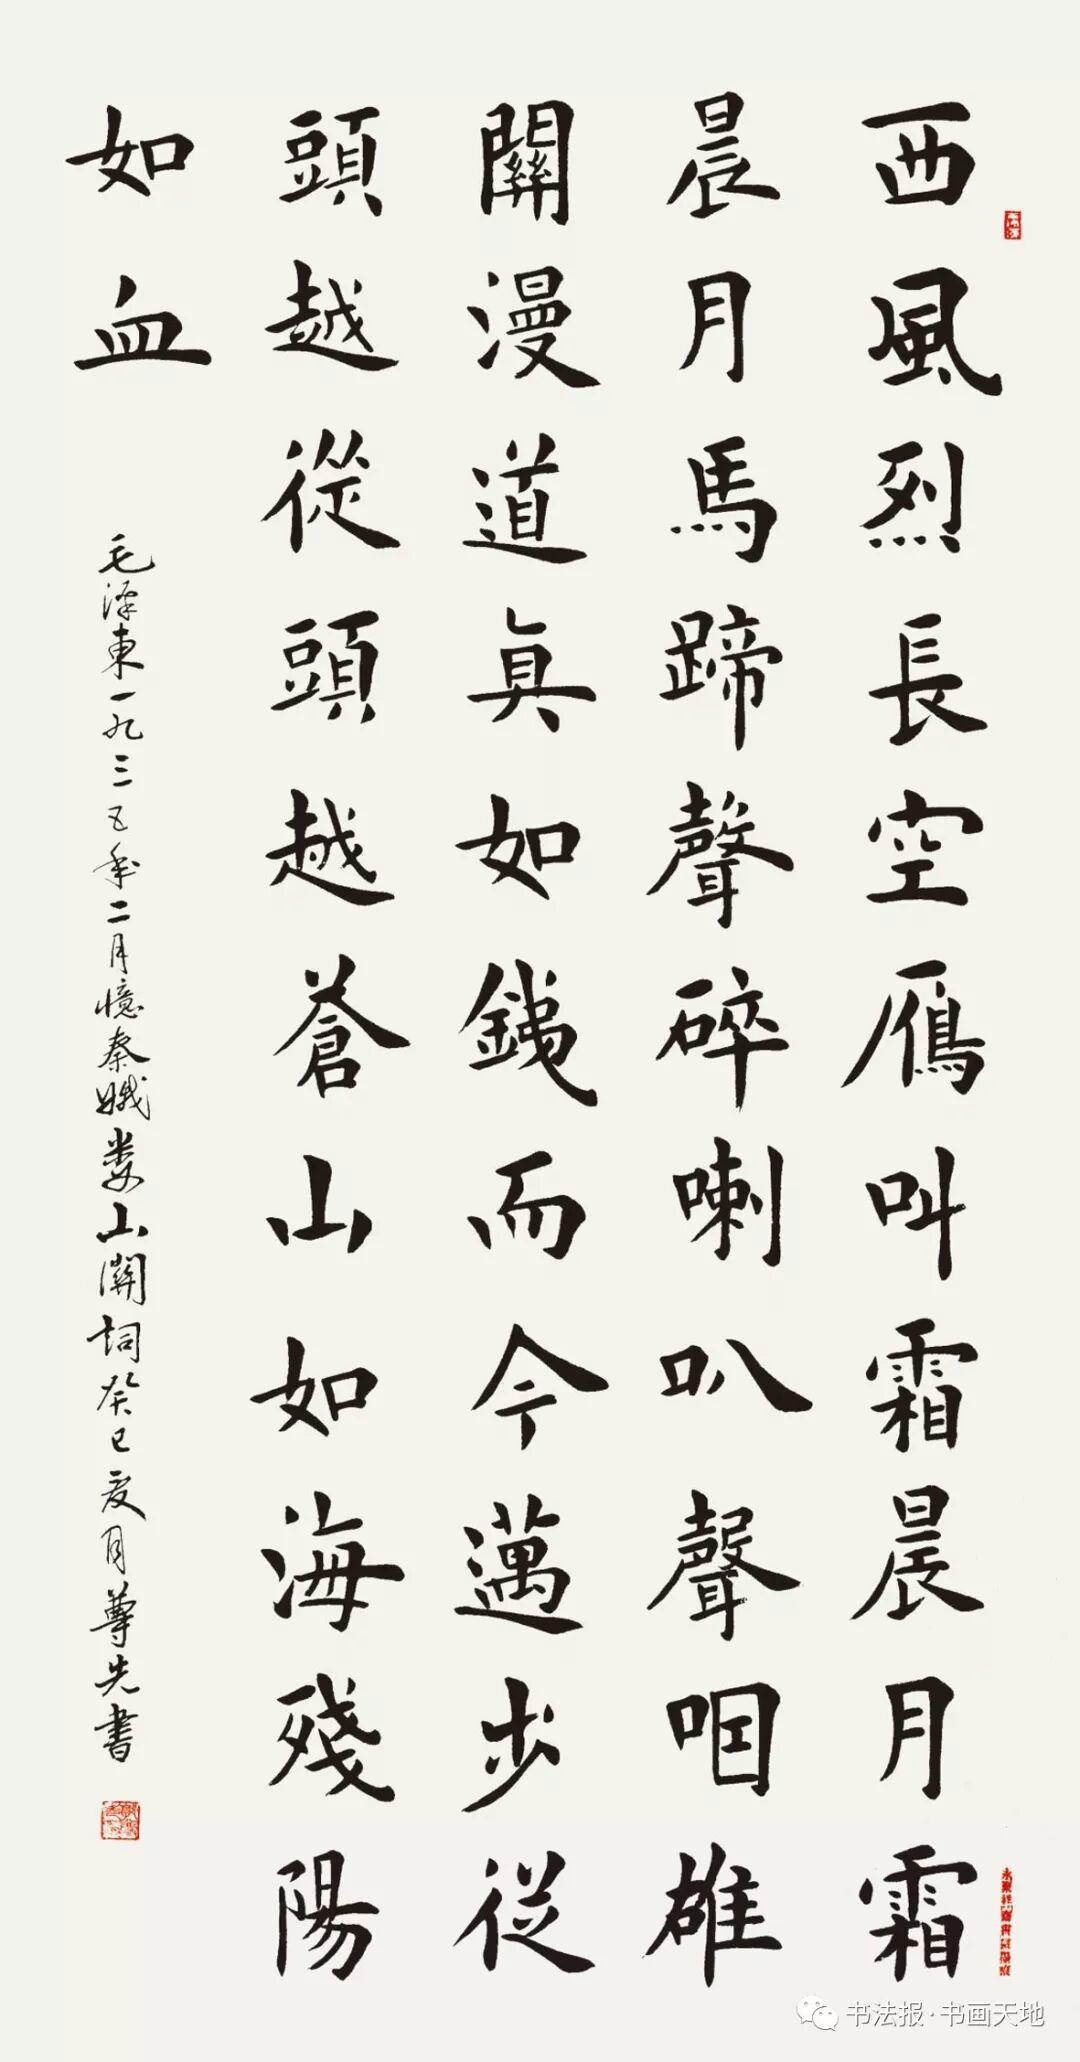 西風烈長空雁叫霜晨月霜
晨月馬蹄聲碎喇叭聲咽雄
關漫道真如鐵而今邁步從
頭越從頭越蒼山如海殘陽
如血
毛澤東一九三五年二月憶秦娥娄山關詞癸巳夏月尊先書
书法报·书画天地